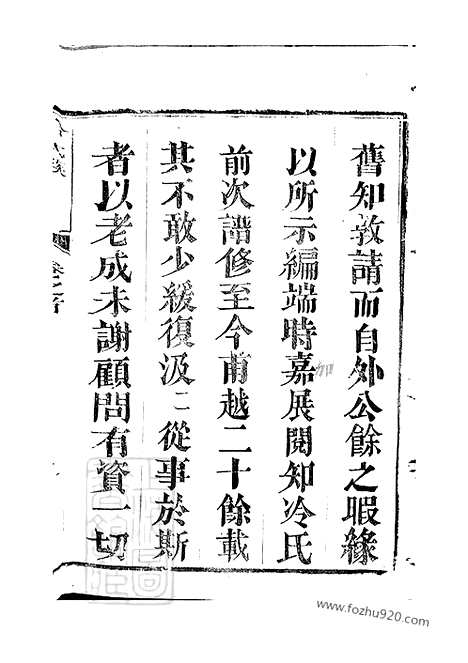 舊知敦請而自外公餘之暇緣
以所示編端時嘉展閱知冷氏
前次譜修至今甫越二十餘載
其不敢少緩復汲〻從事於斯
者以老成未謝顧問有資一切
卷之首
www.fozhu920.com